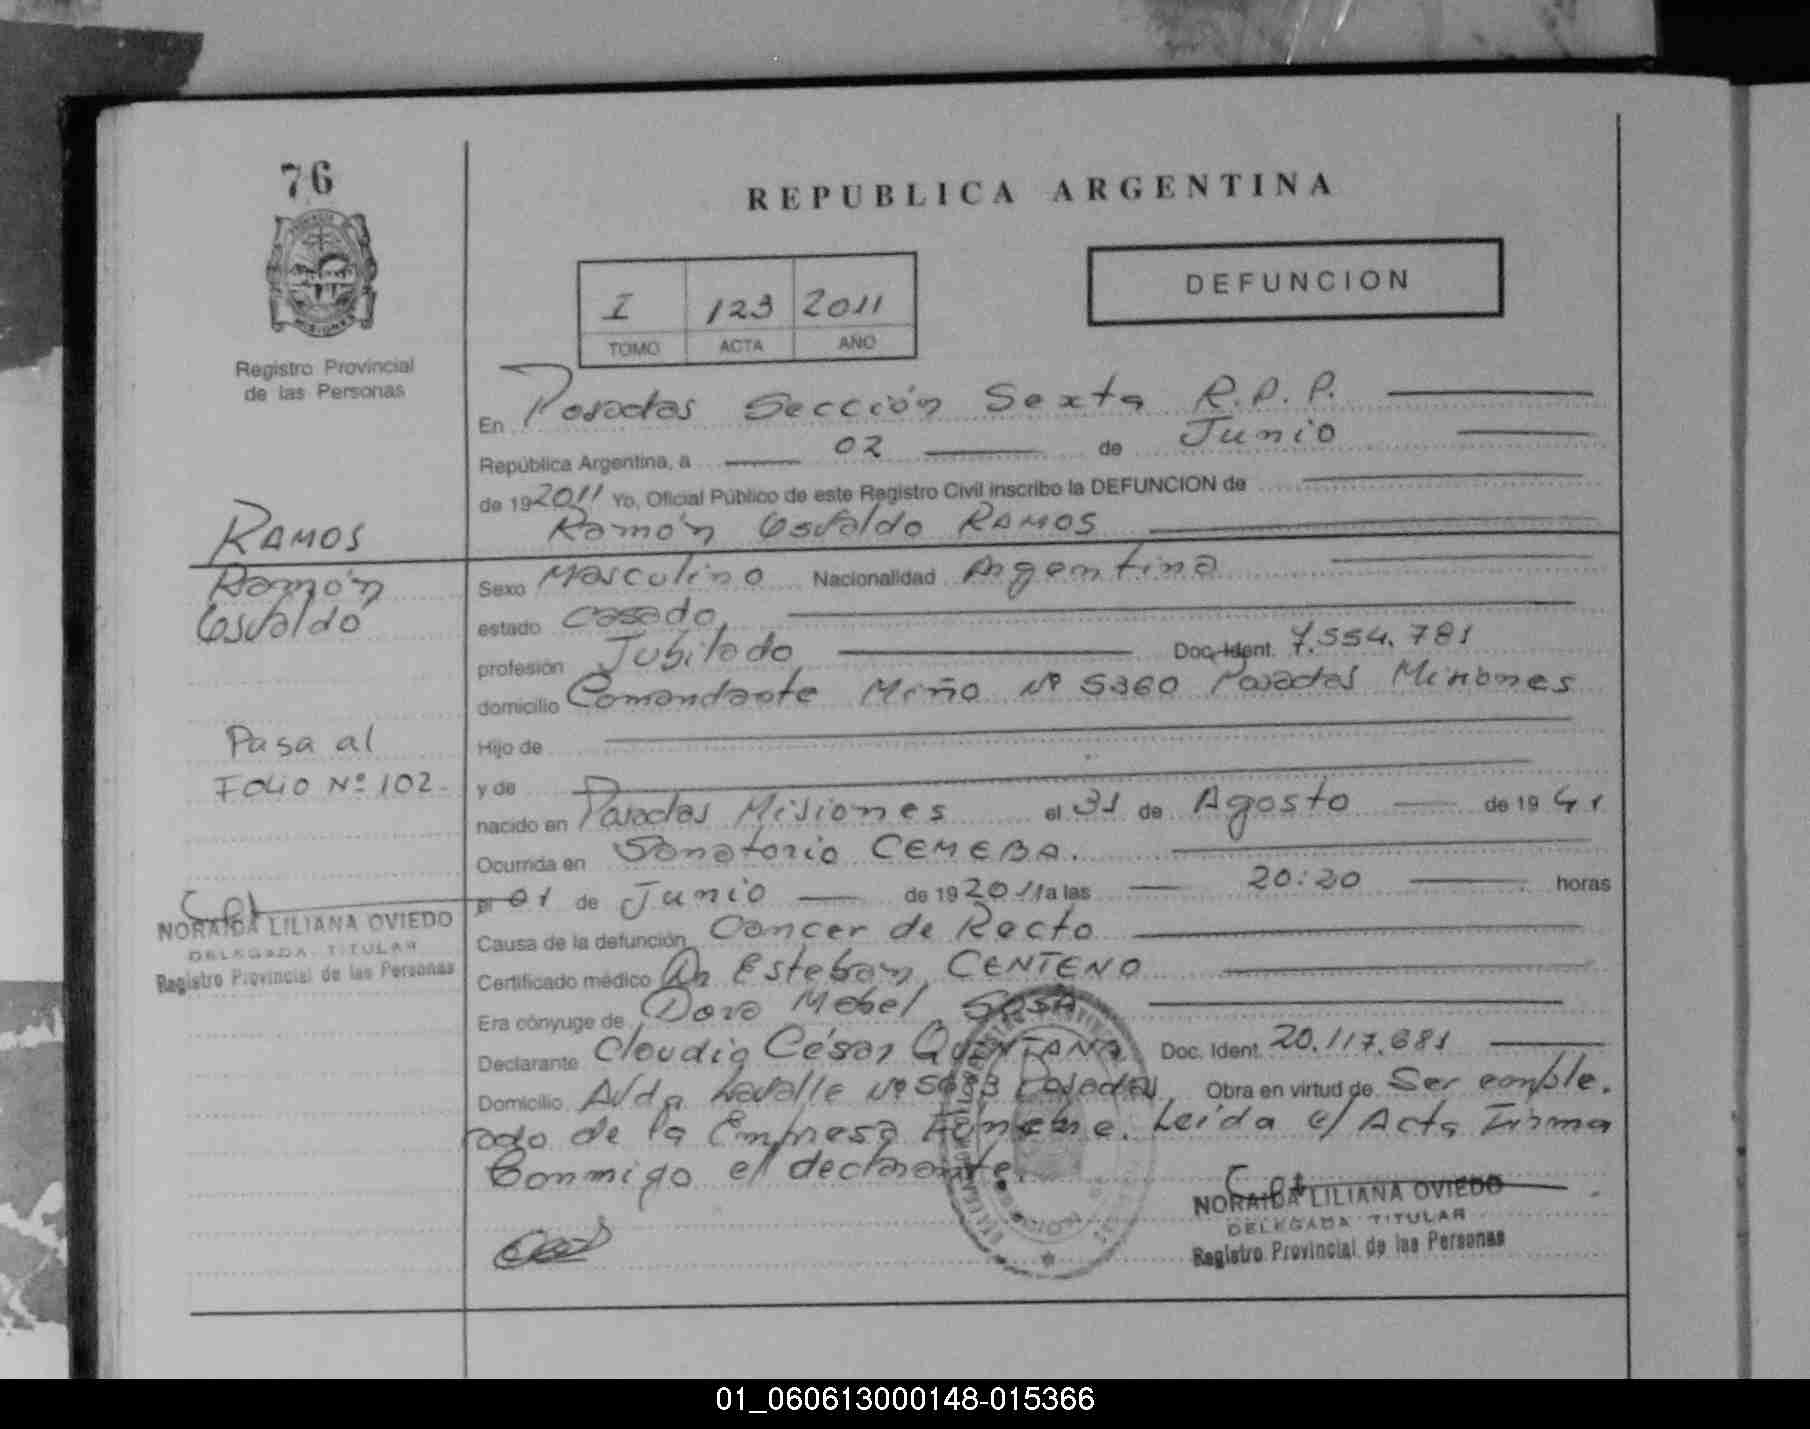 76
REPUBLICA ARGENTINA
DEFUNCION
I 123 2011
TOMO ACTA AÑO
Registro Provincial
de las Personas
En Posadas Sección Sexta R.P.P.
República Argentina, a 02 de Junio
de 192011 Yo, Oficial Público de este Registro Civil inscribo la DEFUNCION de
Ramón Osvaldo RAMOS
RAMOS
Ramón
Osvaldo
Sexo Masculino Nacionalidad Argentina
estado casado
profesión Jubilado Doc. Ident. 7.554.781
domicilio Comandante Miño Nº 5360 Posadas Misiones
Hijo de
y de
Pasa al
Folio Nº 102.
nacido en Posadas Misiones el 31 de Agosto de 1941
Ocurrida en Sanatorio CEMEBA.
el 01 de Junio de 192011 a las 20:20 horas
Causa de la defunción Cancer de Recto
Certificado médico Dr Esteban CENTENO
Era cónyuge de Dora Mabel SOSA
Declarante Claudio César QUINTANA Doc. Ident. 20.117.681
Domicilio Avda Lavalle Nº Posadas Obra en virtud de Ser emple.
ado de la Empresa Fúnebre. Leída el Acta Firma
Conmigo el declarante.
NORAIDA LILIANA OVIEDO
DELEGADA TITULAR
Registro Provincial de las Personas
NORAIDA LILIANA OVIEDO
DELEGADA TITULAR
Registro Provincial de las Personas
01_060613000148-015366